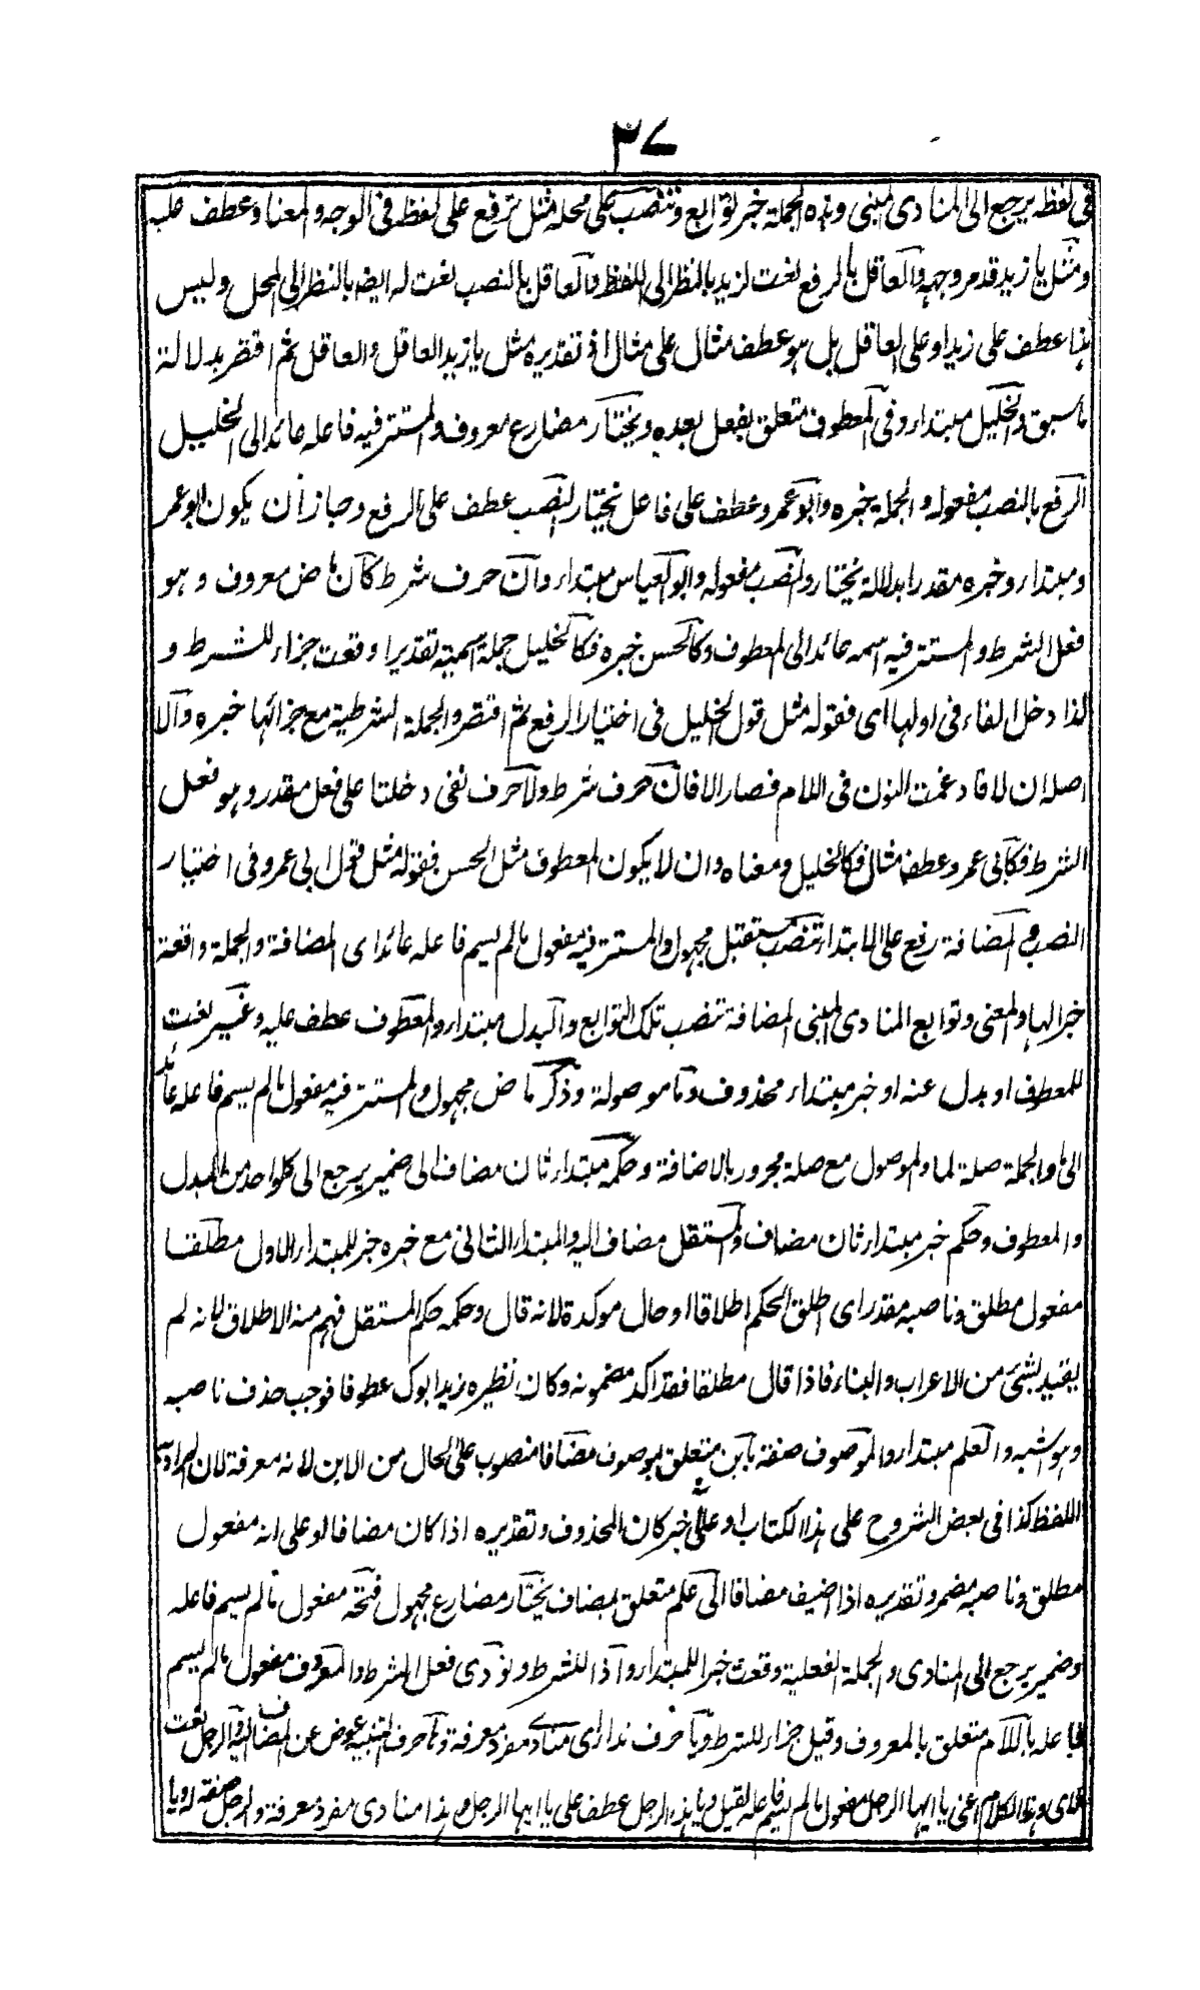 ٣٧
فى لفظه يرجع الى المنادى المبنى وهذه الجملة خبر توابع وتنصب على محله مثل ترفع على لفظه فى الوجه والمعنا وعطف عليه
ومثل يا زيد قد مر وجهه والعاقل بالرفع نعت لزيد بالنظر الى اللفظ والعاقل بالنصب نعت له ايضا بالنظر الى المحل وليس
هذا عطف على زيد او على العاقل بل هو عطف مثال على مثال اذ تقديره مثل يا زيد العاقل والعاقل ثم اقتصر بدلالة
ما سبق والخليل مبتدا وفى المعطوف متعلق بفعل بعده ويختار مضارع معروف والمستتر فيه فاعله عائد الى الخليل
الرفع بالنصب مفعوله والجملة خبره وابو عمرو عطف على فاعل يختار النصب عطف على الرفع وجاز أن يكون ابو عمر
و مبتداء وخبره مقدر بدلالة يختار والنصب مفعوله وابو العباس مبتداء وان حرف شرط كان ماض معروف وهو
فعل الشرط والمستتر فيه اسمه عائد الى المعطوف وكالحسن خبره فكالخليل جملة اسمية تقديرا وقعت جزاء للشرط و
لذا دخل الفاء فى اولها اى فقوله مثل قول الخليل فى اختيار الرفع ثم اقتصر والجملة الشرطية مع جزائها خبره والا
اصله ان لا فادغمت النون فى اللام فصار الا فان حرف شرط ولا حرف نفى دخلتا على فعل مقدر وهو فعل
الشرط فكابى عمرو عطف مثال فكالخليل ومعناه وان لا يكون المعطوف مثل الحسن فقوله مثل قول ابى عمرو فى اختيار
النصب والمضافة رفع على الابتداء تنصب مستقبل مجهول والمستتر فيه مفعول ما لم يسم فاعله عائد اى المضافة والجملة واقعة
خبر لها والمعنى وتوابع المنادى المبنى المضافة تنصب تلك التوابع والبدل مبتداء والمعطوف عطف عليه وغير نعت
للمعطوف او بدل عنه او خبر مبتداء محذوف وما موصولة وذكر ماض مجهول والمستتر فيه مفعول ما لم يسم فاعله عائد
الى ما والجملة صلة لما والموصول مع صلة مجرور بالاضافة وحكمه مبتداء ثان مضاف الى ضمير يرجع الى كل واحد من البدل
والمعطوف وحكم خبر مبتداء ثان مضاف والمستقل مضاف اليه والمبتدا الثانى مع خبره خبر للمبتداء الاول مطلقا
مفعول مطلق وناصبه مقدر اى اطلق الحكم اطلاقا او حال موكدة لانه قال وحكمه حكم المستقل فهم منه الاطلاق لانه لم
يقيد بشئ من الاعراب والبناء فاذا قال مطلقا فقد اكد مضمونه وكان نظيره زيد ابوك عطوفا فوجب حذف ناصبه
وهو اثبته والعلم مبتداء والموصوف صفة بابن متعلق بموصوف مضافا منصوب على الحال من الابن لانه معرفة لان المراد به
اللفظ كذا فى بعض الشروح على هذا الكتاب او على انه خبر كان المحذوف وتقديره اذا كان مضافا او على انه مفعول
مطلق وناصبه مضمر وتقديره اذا اضيف مضافا الى علم متعلق بمضاف يختار مضارع مجهول فتحه مفعول ما لم يسم فاعله
وضمير يرجع الى المنادى والجملة الفعلية وقعت خبرا للمبتداء واذا للشرط ونودى فعل الشرط والمعروف مفعول ما لم يسم
فاعله باللام متعلق بالمعروف وقيل جزاء للشرط ويا حرف نداء اى منادى مفرد معرفة وها حرف التنبيه عوض عن المضاف اليه والرجل نعت
اى وهذا الكلام اعنى يا ايها الرجل مفعول ما لم يسم فاعله لقيل ويا هذا الرجل عطف على يا ايها الرجل وهذا منادى مفرد معرفة والرجل صفة له ويا